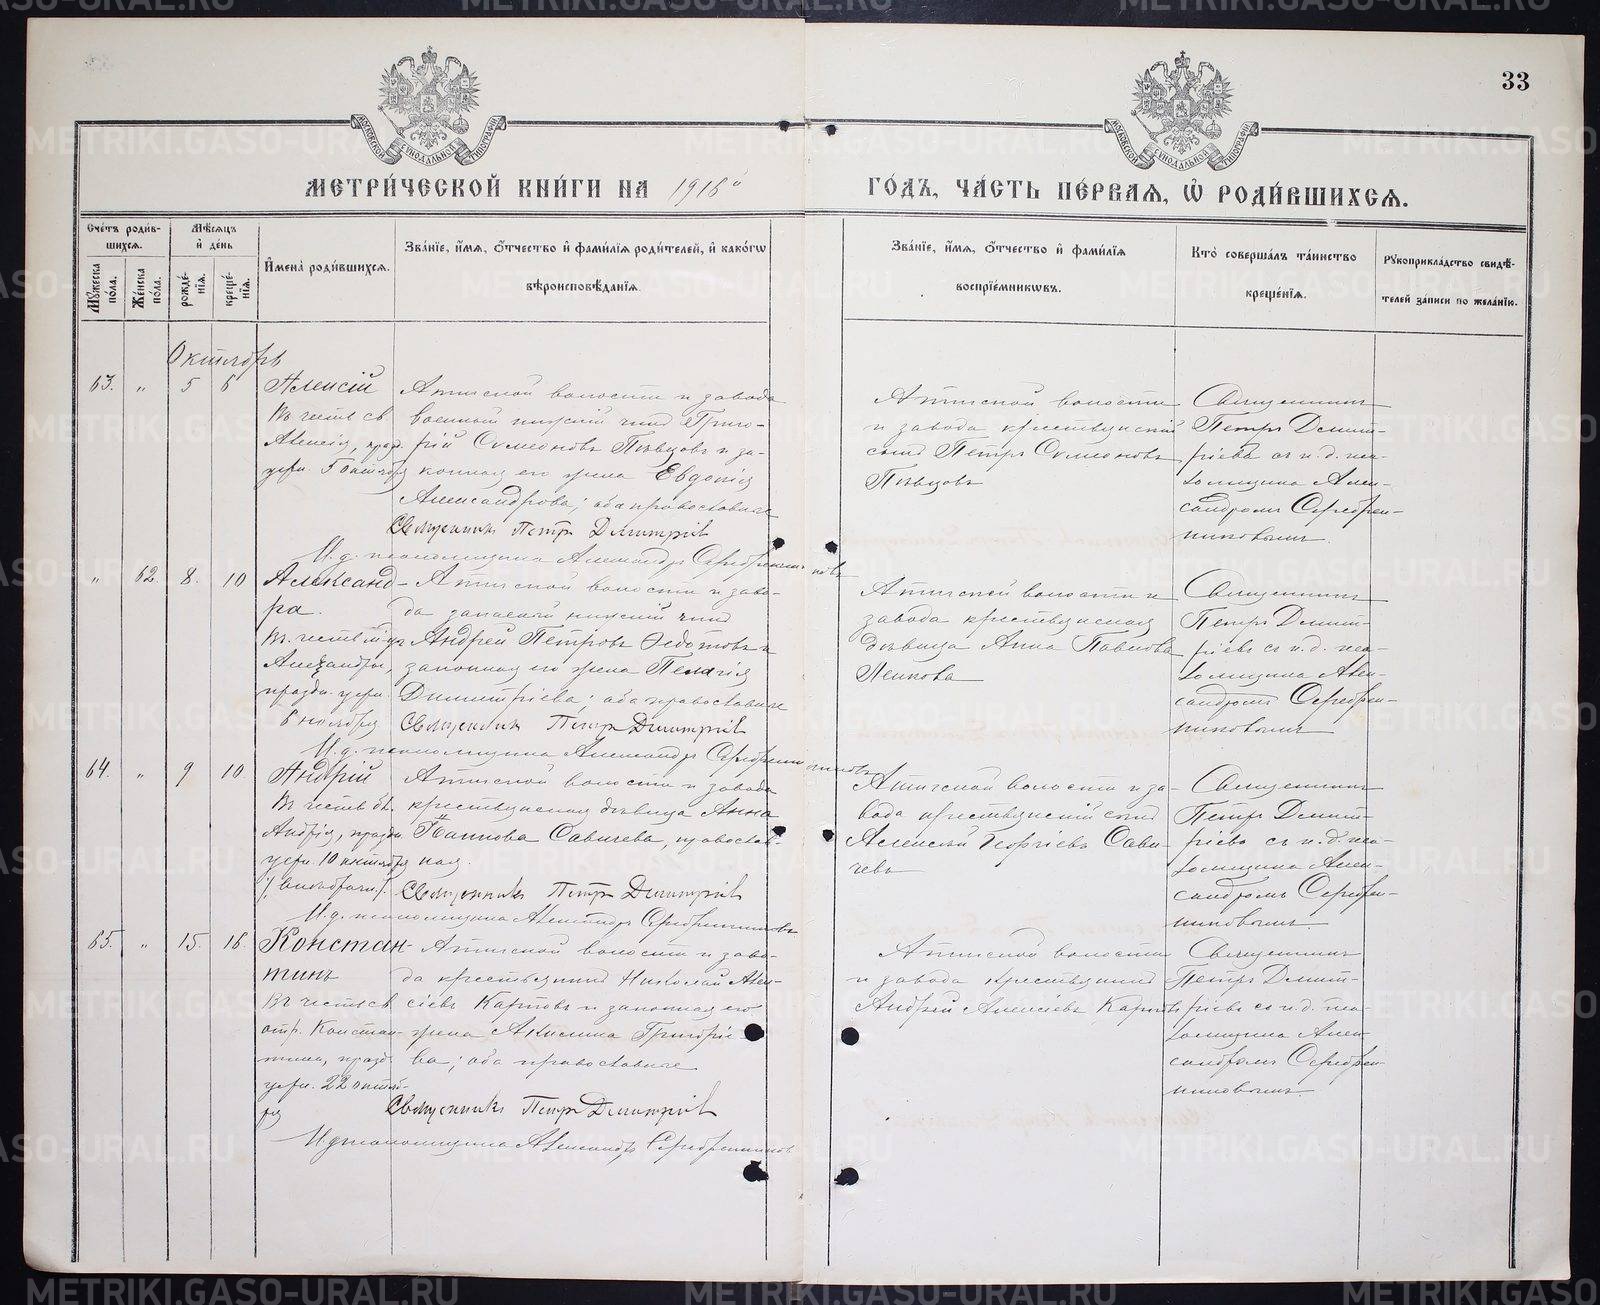 33
МОСКОВСКОЙ СѴНОДАЛЬНОЙ ТИПОГРАФІИ
МОСКОВСКОЙ СѴНОДАЛЬНОЙ ТИПОГРАФІИ
МЕТРИ́ЧЕСКОЙ КНИ́ГИ НА 1918й
ГО́ДЪ, ЧА́СТЬ ПЕ́РВАѦ, Ѡ҆ РОДИ́ВШИХСѦ.
Сче́тъ роди́в-
шихсѧ.
Мꙋ́жеска по́ла.
Же́нска по́ла.
Мѣ́сѧцъ
и҆ де́нь
рожде́-
нїѧ.
креще́-
нїѧ.
И҆мена̀ роди́вшихсѧ.
Зва́нїе, и҆́мѧ, ѻ҆́тчество и҆ фами́лїѧ роди́телей, и҆ како́гѡ
вѣроисповѣ́данїѧ.
Зва́нїе, и҆́мѧ, ѻ҆́тчество и҆ фами́лїѧ
воспрїе́мникѡвъ.
Кто̀ соверша́лъ та́инство
креще́нїѧ.
Рꙋкоприкла́дство свидѣ́-
телей за́писи по жела́нїю.
Октябрь
63. " 5 6
Алексій
Въ честь св
Алексія, празд.
церк. 5 октября
Атигской волости и завода
военный нижній чинъ Григо-
рій Симеоновъ Пѣвцовъ и за-
конная его жена Евдокія
Александрова; оба православные
Священникъ Петръ Димитріевъ
И.д. псаломщика Александръ Серебренниковъ
Атигской волости
и завода крестьянскій
сынъ Петръ Симеоновъ
Пѣвцовъ
Священникъ
Петръ Димит-
ріевъ съ и.д. пса-
ломщика Алек-
сандромъ Серебрен-
никовымъ.
" 62 8. 10
Александ-
ра.
Въ честь м-цъ
Александры,
праздн. церк.
6 ноября
Атигской волости и заво-
да запасной нижній чинъ
Андрей Петровъ Федотовъ и
законная его жена Пелагія
Димитріева; оба православные
Священникъ Петръ Димитріевъ
И.д. псаломщика Александръ Серебренниковъ
Атигской волости и
завода крестьянская
дѣвица Анна Павлова
Пенкова
Священникъ
Петръ Димит-
ріевъ съ и.д. пса-
ломщика Алек-
сандромъ Серебрен-
никовымъ
64. " 9 10
Андрій
Въ честь бл.
Андрія, праздн.
церк. 10 октября
/внѣбрачн./.
Атигской волости и завода
крестьянская дѣвица Анна
Савичева, православ-
ная.
Священникъ Петръ Димитріевъ
И.д. псаломщика Александръ Серебренниковъ
Атигской волости и за-
вода крестьянскій сынъ
Алексій Георгіевъ Сави-
чевъ
Священникъ
Петръ Димит-
ріевъ съ и.д. пса-
ломщика Алек-
сандромъ Серебрен-
никовымъ.
65. " 15. 16.
Констан-
тинъ
Въ честь св
отр. Констан-
тина, празд.
церк. 22 октяб-
ря
Атигской волости и заво-
да крестьянинъ Николай Алек-
сіевъ Карповъ и законная его
жена Акилина Григоріе-
ва; оба православные
Священникъ Петръ Димитріевъ
И.д. псаломщика Александръ Серебренниковъ
Атигской волости
и завода крестьянинъ
Андрей Алексіевъ Карповъ
Священникъ
Петръ Димит-
ріевъ съ и.д. пса-
ломщика Алек-
сандромъ Серебрен-
никовымъ.
METRIKI.GASO-URAL.RU